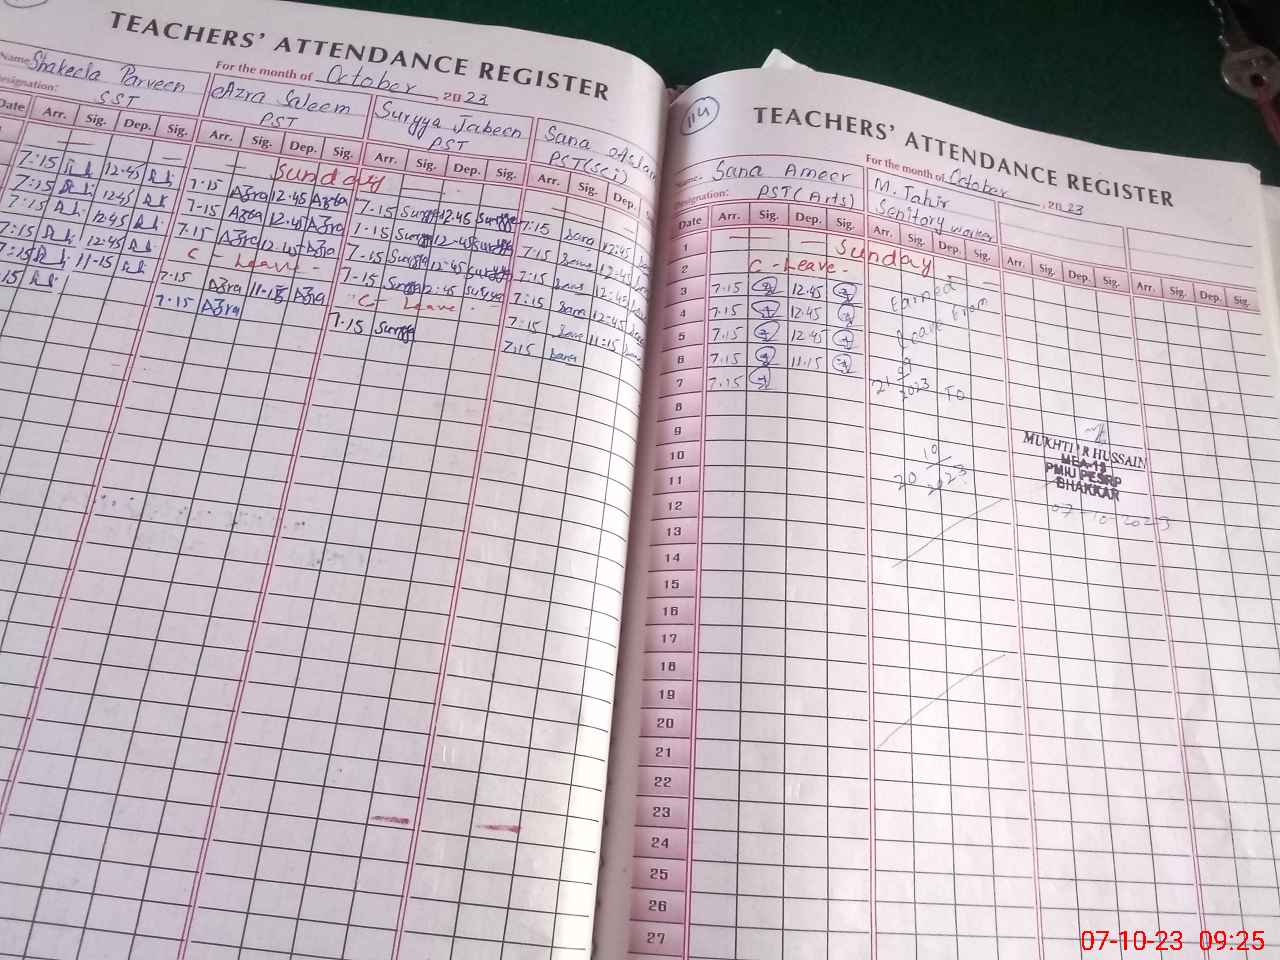 TEACHERS' ATTENDANCE REGISTER
For the month of October, 2023
Name Shakeela Parveen Azra Saleem Suryya Jabeen Sana
Designation: SST PST PST PST(Sci)
Date Arr. Sig. Dep. Sig. Arr. Sig. Dep. Sig. Arr. Sig. Dep. Sig. Arr. Sig. Dep.
Sunday
7:15 12:45 7-15 Azra 12.45 Azra 7-15 12.45 7:15 Sana 12:45
7:15 12:45 7-15 Azra 12.45 Azra 7-15 12-45 7:15 12:45
7:15 12:45 7-15 Azra 12.45 Azra 7-15 12:45 7:15 12:45
7:15 12:45 C - Leave - 7-15 12:45 7:15 Sana 12:45
7:15 11-15 7:15 Azra 11-15 Azra C - Leave - 7:15 11:15
15 7:15 Azra 7-15 7:15 Sana
114
TEACHERS' ATTENDANCE REGISTER
For the month of October, 2023
Name. Sana Ameer M. Tahir
Designation: PST(Arts) Sanitory worker
Date Arr. Sig. Dep. Sig. Arr. Sig. Dep. Sig. Arr. Sig. Dep. Sig. Arr. Sig. Dep. Sig.
1 — — Sunday —
2 C - Leave -
3 7.15 12.45
4 7.15 12.45
5 7.15 12.45
6 7.15 11.15
7 7.15
Earned
Leave From
21 09 2023 To
20 10 2023
8
9
10
11
12
13
14
15
16
17
18
19
20
21
22
23
24
25
26
27
MUKHTIAR HUSSAIN
MEA-13
PMIU PESRP
BHAKKAR
07-10-2023
07-10-23 09:25